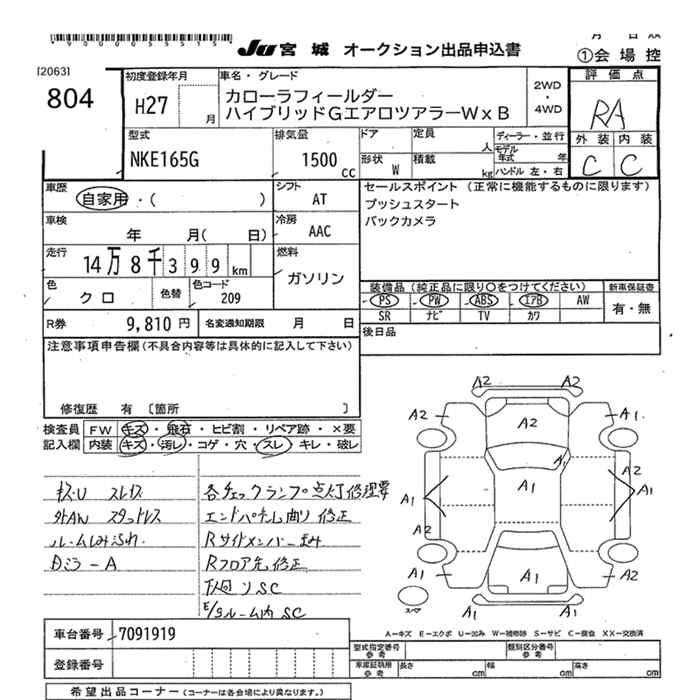 JU 宮城 オークション出品申込書
①会場控
[2063]
804
初度登録年月
H27 月
車名・グレード
カローラフィールダー
ハイブリッドGエアロツアラーW×B
2WD
・
4WD
評価点
RA
外装 内装
C C
型式
NKE165G
排気量
1500 cc
ドア
定員 人
形状 W
積載 kg
ディーラー・並行
モデル年式 年
ハンドル 左・右
車歴
自家用・( )
シフト
AT
車検
年 月( 日)
冷房
AAC
走行
14万8千399 km
燃料
ガソリン
色
クロ
色替
色コード
209
R券
9,810 円
名変通知期限 月 日
セールスポイント (正常に機能するものに限ります)
プッシュスタート
バックカメラ
装備品 (純正品に限り○をつけてください)
新車保証書
PS PW ABS エアB AW
SR ナビ TV カワ
有・無
後日品
注意事項申告欄(不具合内容等は具体的に記入して下さい)
修復歴 有 〔箇所 〕
検査員
記入欄
FW キズ・飛石・ヒビ割・リペア跡・×要
内装 キズ・汚レ・コゲ・穴・スレ・キレ・破レ
キズU スレキズ
外AW スタッドレス
ルームしみ汚れ
Dミラ-A
各チェックランプ点灯修理要
エンドパネル曲り修正
Rサイドメンバー歪み
Rフロア先修正
下回りSC
E/Sルーム内SC
A2 A2
A2 A2 A1
A1
A1 A1 A2 A1
A2 A2
A1 A1 A2
A1
スペア
A-キズ E-エクボ U-凹み W-補修跡 S-サビ C-腐食 XX-交換済
車台番号 7091919
登録番号
型式指定番号
参考
類別区分番号
参考
車庫証明用
参考
長さ cm
幅 cm
高さ cm
希望出品コーナー (コーナーは各会場により異なります。)